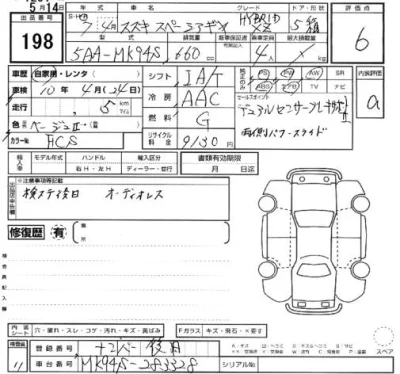 5月14日
出品番号
198
7年4月 スズキ スペーシアギア
グレード
HYBRID
XZ
ドア・形状
5 箱
評価点
6
型式
5AA-MK94S
排気量
660 cc
乗車定員
4 人
最大積載量
kg
車歴
自家用・レンタ
車検
10年 4月(24日)
走行
5 km
色
ベージュⅡ
カラーNo.
FCS
シフト
IAT
冷房
AAC
燃料
G
リサイクル料金
9130 円
PS
PW
AW
SR
ABS
TV
ナビ
セールスポイント
デュアルセンサーブレーキサポートⅡ
両側パワースライド
内装評価
a
輸入車
モデル年式
ハンドル
右H・左H
輸入区分
ディーラー・並行
書類有効期限
月 日迄
注意事項等記載
検ステ後日 オーディオレス
修復歴 有
検査員記入欄
内装シート
穴・擦れ・スレ・コゲ・汚れ・キズ・黄ばみ
Fガラス
キズ・飛石・×要す
スペア
登録番号
ナンバー後日
車台番号
MK94S-283328
シリアルNo.
11